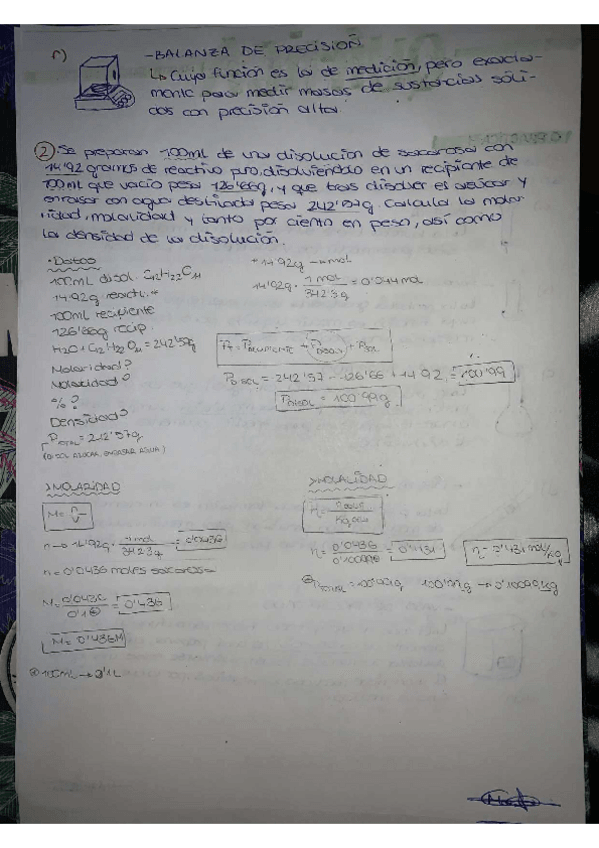 - BALANZA DE PRECISIÓN
↳ Cuya función es la de medición, pero exacta-
mente para medir masas de sustancias sóli-
das con precisión alta.
② Se preparan 100ml de una disolución de sacarosa con
14'92 gramos de reactivo puro, disolviéndolo en un recipiente de
100ml que vacío pesa 126'66g, y que tras disolver el azúcar y
enrasar con agua destilada pesa 242'57g. Calcula la molar-
idad, molalidad y tanto por ciento en peso, así como
la densidad de la disolución.
· Datos
100ml disol. C12H22O11
14'92g react.
100ml recipiente
126'66g recip.
H2O + C12H22O11 = 242'57g
Molaridad?
Molalidad?
% ?
Densidad?
PTOTAL = 242'57g
(DISOL AZÚCAR, ENRASAR AGUA)
14'92g → mol
14'92g · 1 mol / 342'3g = 0'044 mol
PDISOL = 242'57 - 126'66 - 14'92 = 100'99
PDISOL = 100'99g
> MOLARIDAD
M = n / V
n → 14'92g · 1 mol / 342'3g = 0'0436
n = 0'0436 moles sacarosa
M = 0'0436 / 0'1 = 0'436
M = 0'436M
100ML → 0'1L
> MOLALIDAD